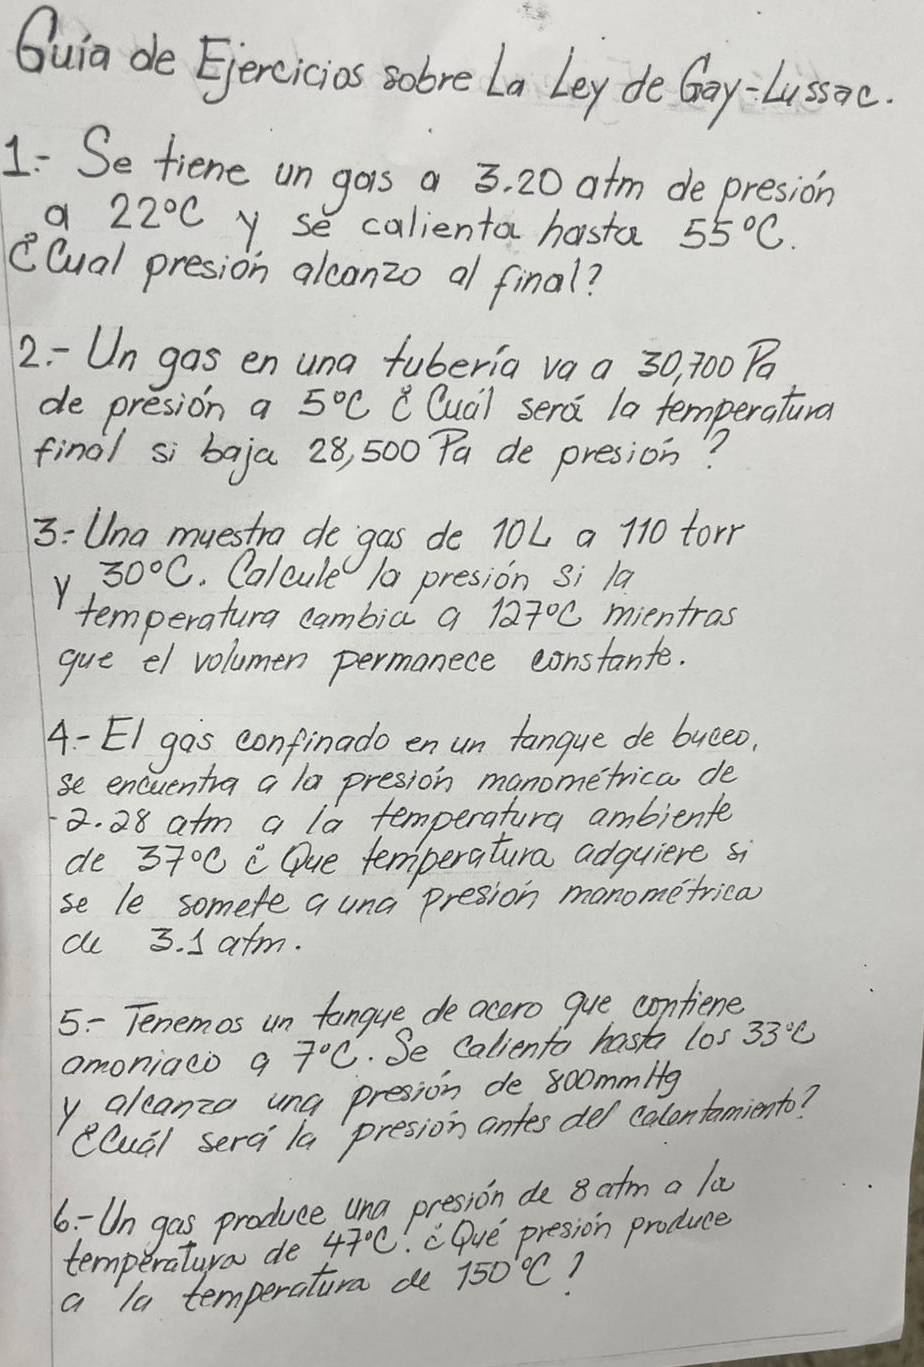 Guía de Ejercicios sobre La Ley de Gay-Lussac.
1.- Se tiene un gas a 3.20 atm de presión
a 22°C y se calienta hasta 55°C.
¿Cual presión alcanzo al final?
2.- Un gas en una tubería va a 30,700 Pa
de presión a 5°C ¿Cuál será la temperatura
final si baja 28,500 Pa de presión?
3.- Una muestra de gas de 10L a 710 torr
y 30°C. Calcule la presión si la
temperatura cambia a 127°C mientras
que el volumen permanece constante.
4.- El gas confinado en un tanque de buceo,
se encuentra a la presión manométrica de
2.28 atm a la temperatura ambiente
de 37°C ¿Que temperatura adquiere si
se le somete a una presión manométrica
de 3.1 atm.
5.- Tenemos un tanque de acero que contiene
amoniaco a 7°C. Se calienta hasta los 33°C
y alcanza una presión de 800mmHg
¿Cuál será la presión antes del calentamiento?
6.- Un gas produce una presión de 8 atm a la
temperatura de 47°C. ¿Qué presión produce
a la temperatura de 150°C?